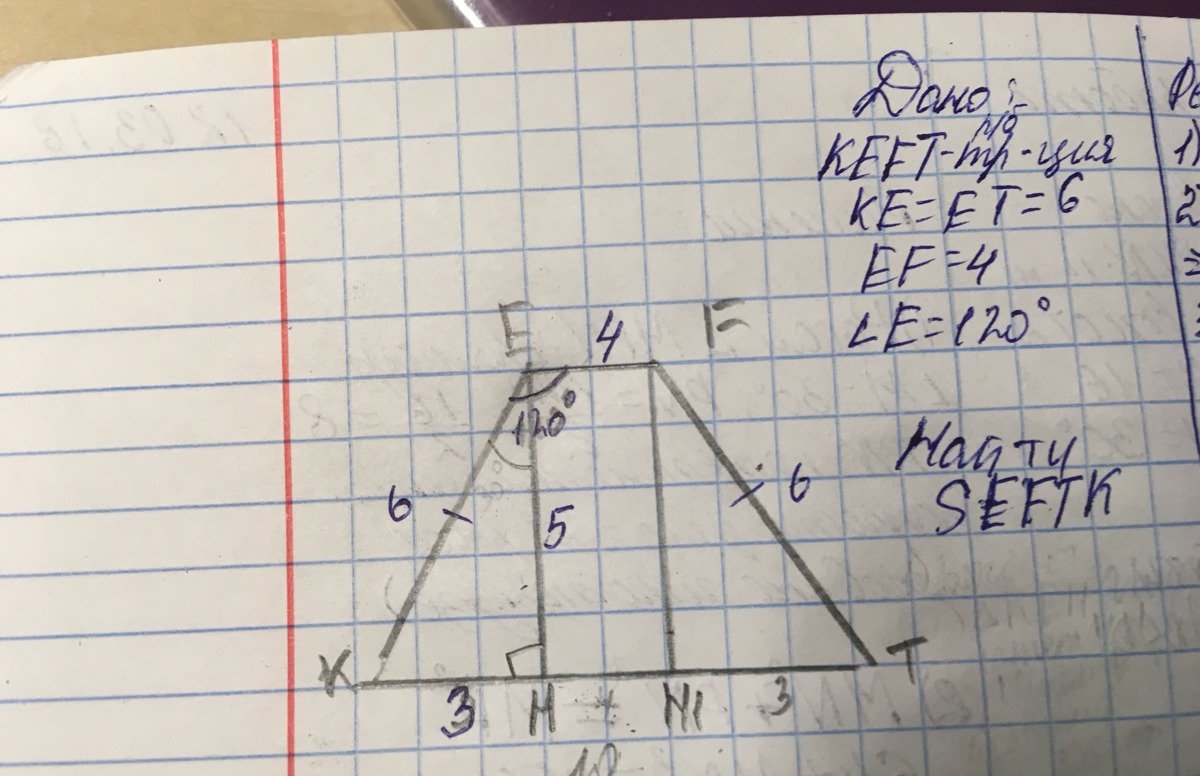 Дано:
р/б
KEFT-тр-ция
KE=ET=6
EF=4
∠E=120°
Найти
SEFTK
E 4 F
120°
6 5 6
K H H1 T
3 4 3
1)
2